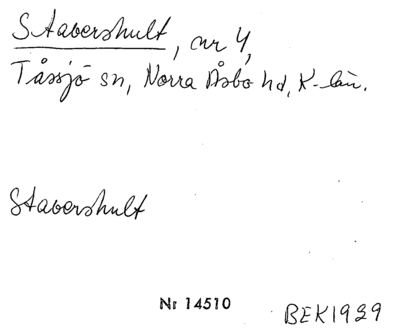 Stavershult, nr 4,
Tåssjö sn, Norra Åsbo hd, K-län.
Stavershult
Nr 14510
BEK1929